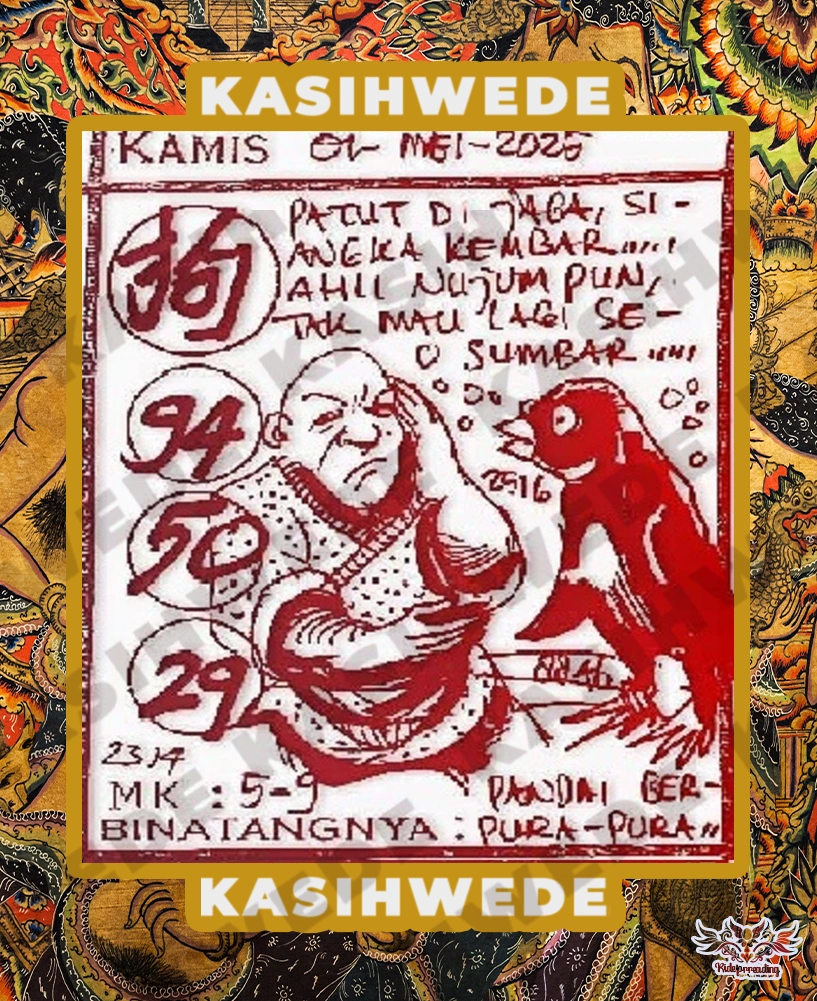 KASIHWEDE
KAMIS 01 MEI-2025
狗
PATUT DI JAGA, SI-
ANGKA KEMBAR.....
AHLI NUJUM PUN,
TAK MAU LAGI SE-
O SUMBAR.....
94
50
29
2916
8846
2314
MK : 5-9
PANDAI BER-
BINATANGNYA : PURA-PURA
KASIHWEDE